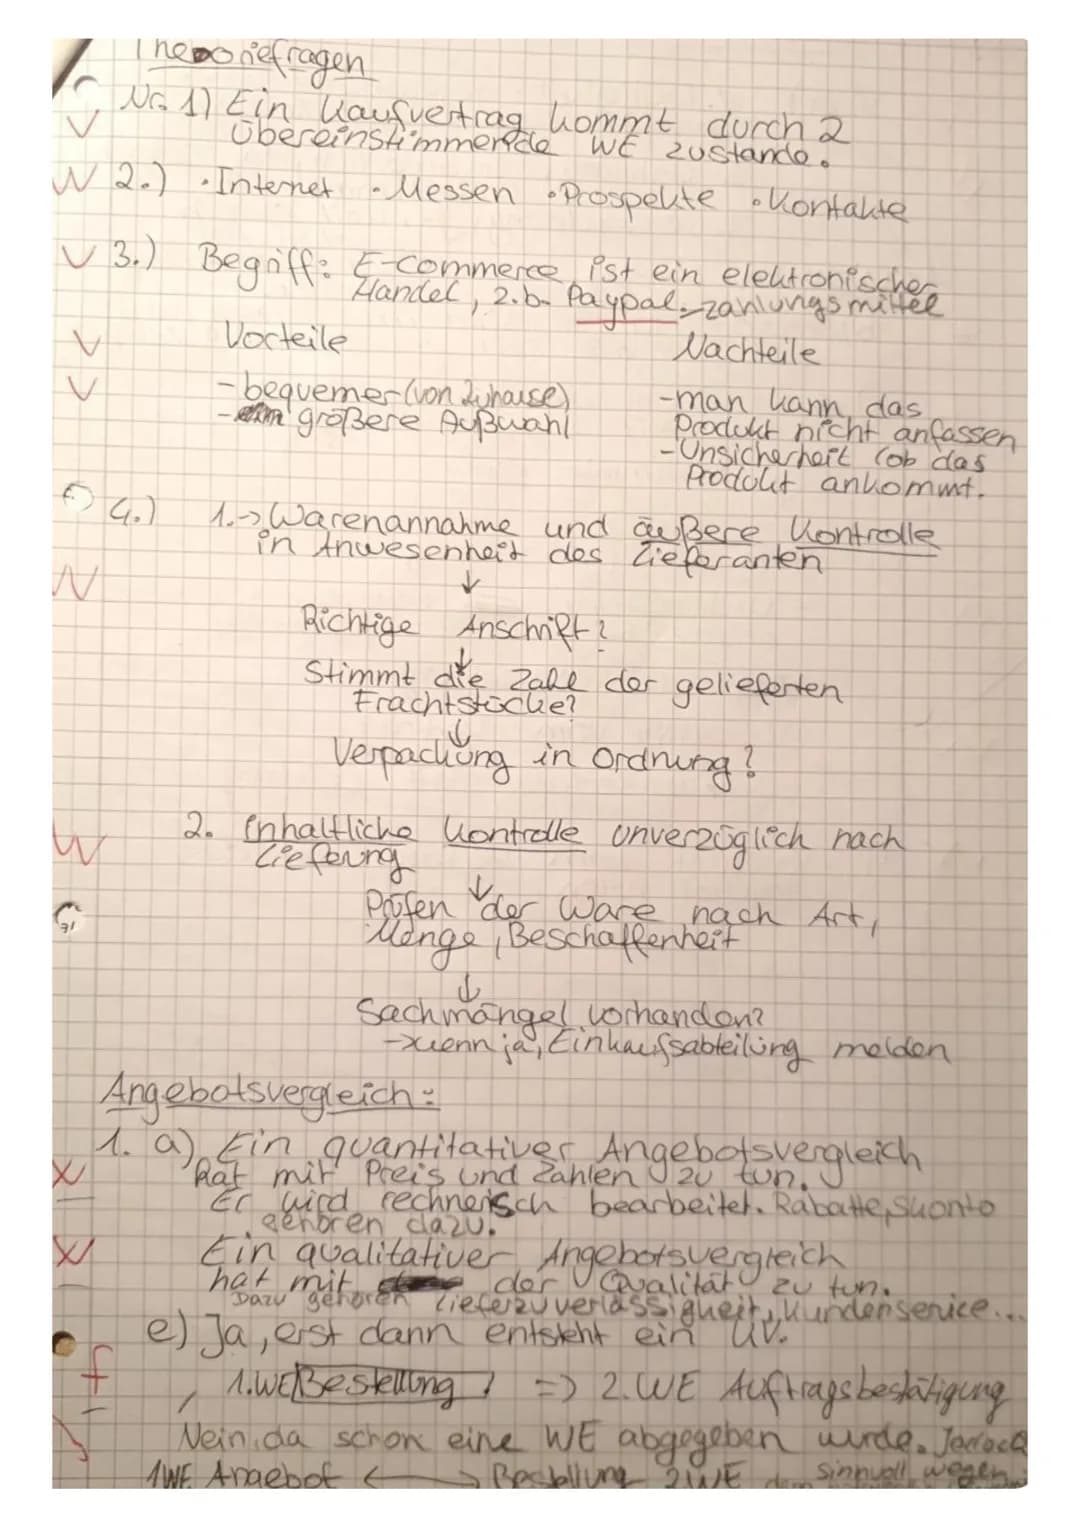 Theoriefragen
Nr. 1) Ein Kaufvertrag kommt durch 2
Übereinstimmende WE zustande.
2.) • Internet • Messen • Prospekte • Kontakte
3.) Begriff: E-Commerce ist ein elektronischer
Handel, z.b. Paypal-zahlungsmittel
Vorteile Nachteile
- bequemer (von Zuhause)
- größere Außwahl
- man kann das
Produkt nicht anfassen
- Unsicherheit (ob das
Produkt ankommt.
4.) 1.→ Warenannahme und äußere Kontrolle
in Anwesenheit des Lieferanten
↓
Richtige Anschrift?
↓
Stimmt die Zahl der gelieferten
Frachtstücke?
↓
Verpackung in Ordnung?
2. Inhaltliche Kontrolle unverzüglich nach
Lieferung
↓
Prüfen der Ware nach Art,
Menge, Beschaffenheit
↓
Sachmängel vorhanden?
→ wenn ja, Einkaufsabteilung melden
Angebotsvergleich:
1. a) Ein quantitativer Angebotsvergleich
hat mit Preis und Zahlen zu tun.
Er wird rechnerisch bearbeitet. Rabatte, Skonto
gehören dazu.
Ein qualitativer Angebotsvergleich
hat mit der Qualität zu tun.
Dazu gehören Lieferzuverlässigkeit, Kundenservice...
e) Ja, erst dann entsteht ein KV.
1.WE Bestellung => 2.WE Auftragsbestätigung
Nein, da schon eine WE abgegeben wurde. Jedoch
1WE Angebot ←→ Bestellung 2WE sinnvoll wegen